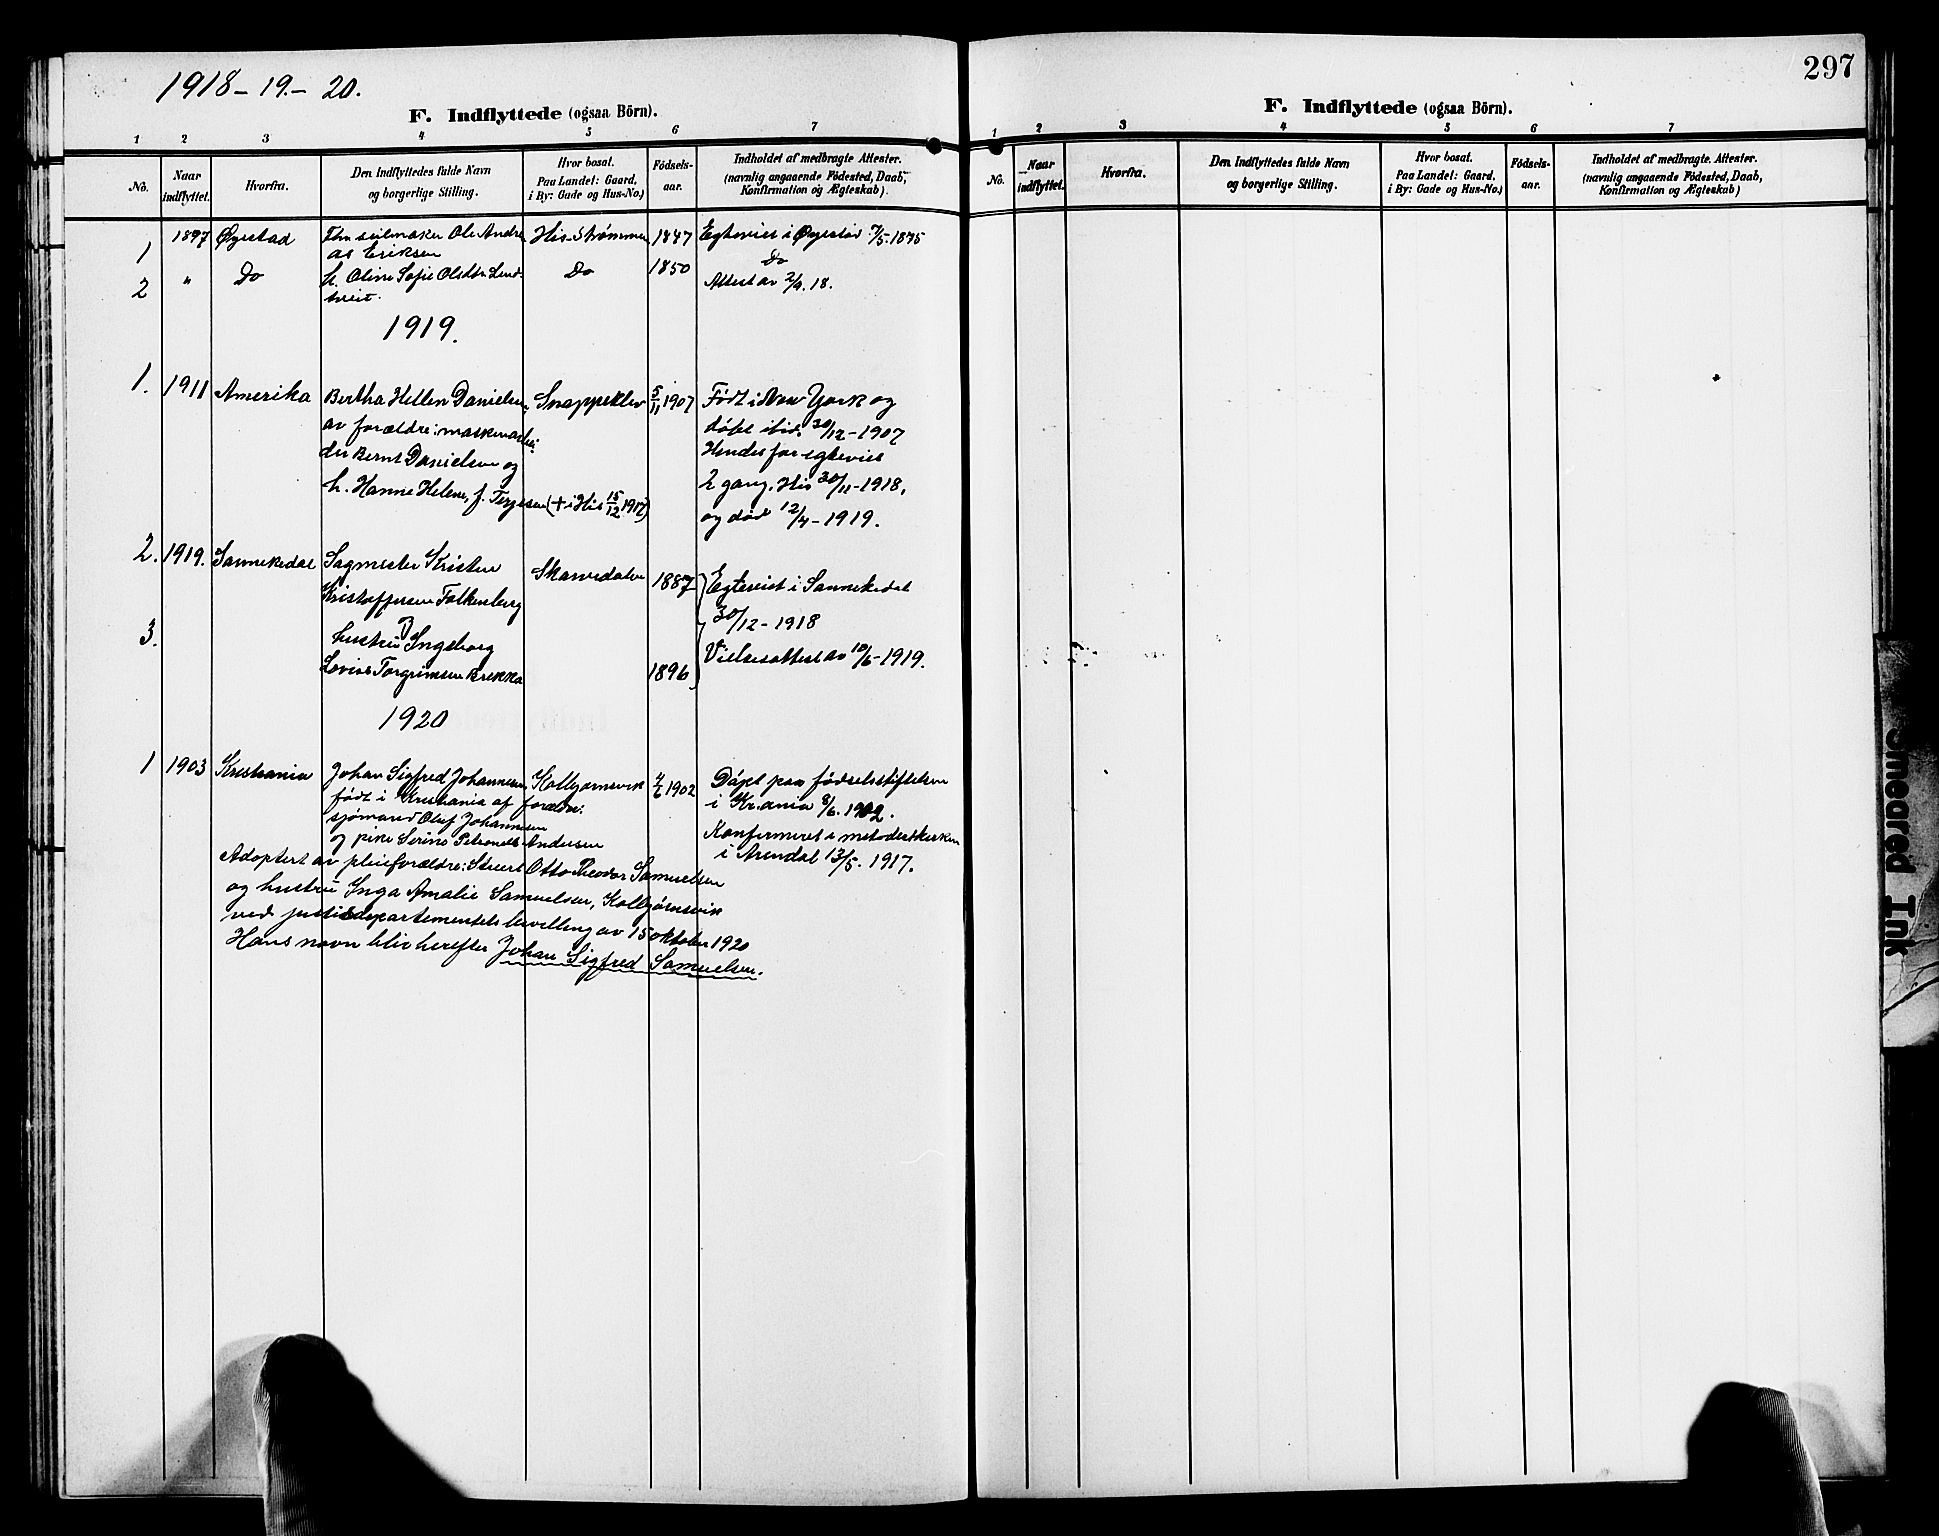 1918-19.- 20.
F. Indflyttede (ogsaa Börn).
1 2 3 4 5 6 7
No. Naar indflyttet. Hvorfra. Den Indflyttedes fulde Navn og borgerlige Stilling. Hvor bosat. Paa Landet: Gaard, i By: Gade og Hus-No.) Födsels-aar. Indholdet af medbragte Attester. (navnlig angaaende Födested, Daab, Konfirmation og Ægteskab.)
1 1897 Øyestad Fhv seilmaker Ole Andre His-Strømmen 1847 Egteviet i Øyestad 7/5. 1875
as Eriksen
2 " Do h. Oline Sofie Olsdtr. Do 1850 Do
Attest av 2/9. 18.
1919.
1. 1911 Amerika Bertha Hellen Danielsen Snappeklev 5/11 1907 Født i New York og
av forældre: maskinarbei- døbt ibid. 30/12-1907
der Bernt Danielsen og Hendes far egteviet
h. Hanne Helene, f. Terjesen (+ i His 15/12 1917) 2 gang, His 30/11-1918,
og død 12/4-1919.
2. 1919. Sannikedal Sagmester Kristen Skarvedalen 1887 Egteviet i Sannikedal
Kristoffersen Falkenberg 30/12-1918
3. hustru Ingeborg
Lovise Torgrimsen Brekka 1896 Vielsesattest av 10/6-1919.
1920
1 1903 Kristiania Johan Sigfred Johannesen Kolbjørnsvik 4/6 1902 Døpt paa fødselsstiftelsen
født i Kristiania af forældre: i Kr.ania 8/6. 1902.
sjømand Oluf Johannesen Konfirmeret i metodistkirken
og pike Serine Petronelle Andersen i Arendal 13/5. 1917.
Adoptert av pleieforældre: Stuert Otto Theodor Samuelsen
og hustru Inga Amalie Samuelsen, Kolbjørnsvik
ved justisdepartementets bevilling av 15 oktober 1920
Hans navn bliv herefter Johan Sigfred Samuelsen.
297
F. Indflyttede (ogsaa Börn).
1 2 3 4 5 6 7
No. Naar indflyttet. Hvorfra. Den Indflyttedes fulde Navn og borgerlige Stilling. Hvor bosat. Paa Landet: Gaard, i By: Gade og Hus-No.) Födsels-aar. Indholdet af medbragte Attester. (navnlig angaaende Födested, Daab, Konfirmation og Ægteskab.)
Smeared Ink